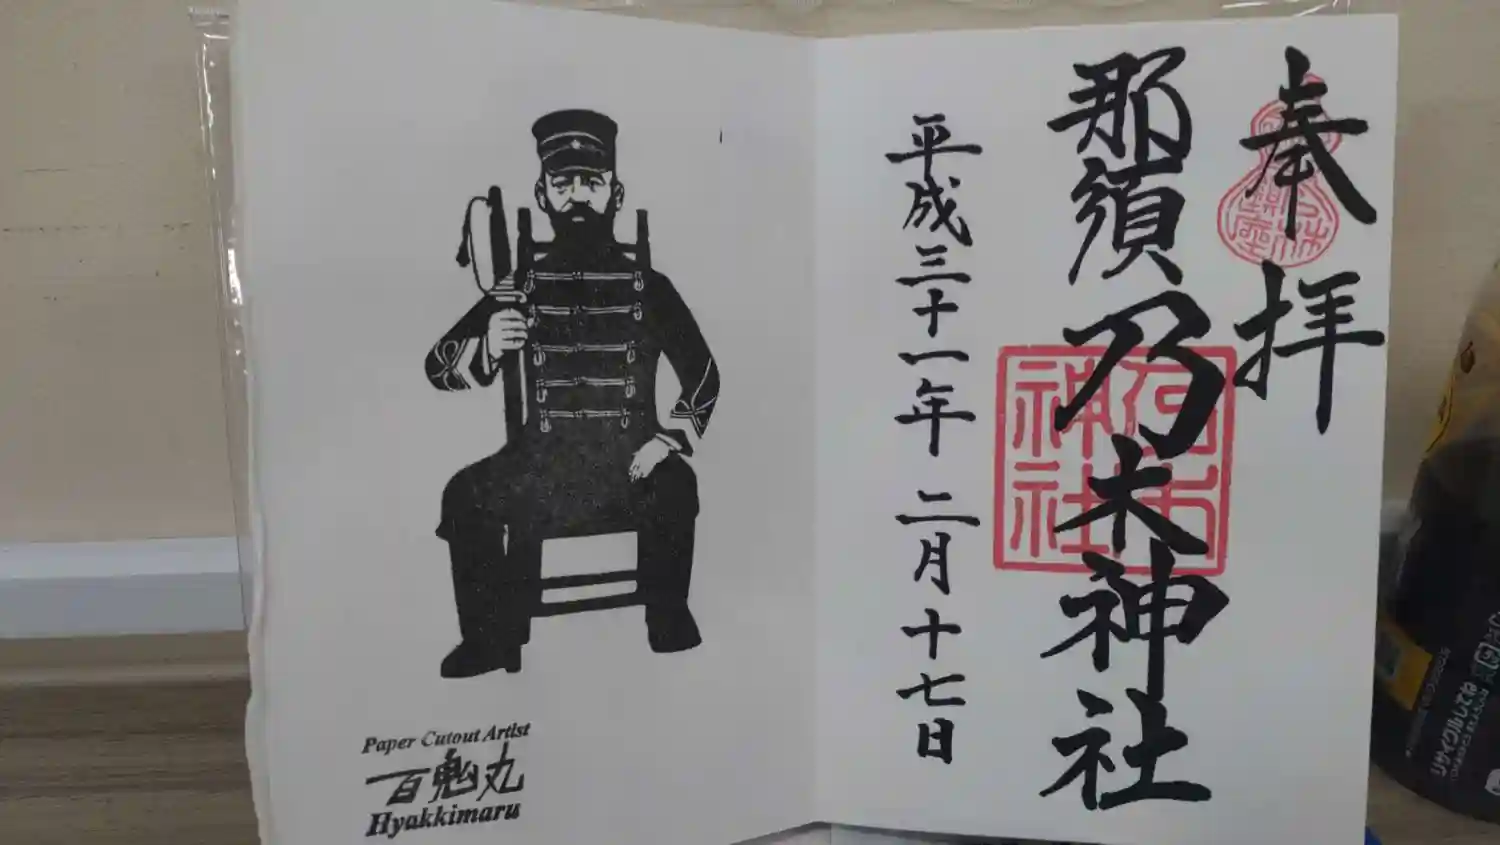 奉拝
那須乃木神社
平成三十一年 二月十七日
神社
Paper Cutout Artist
百鬼丸
Hyakkimaru